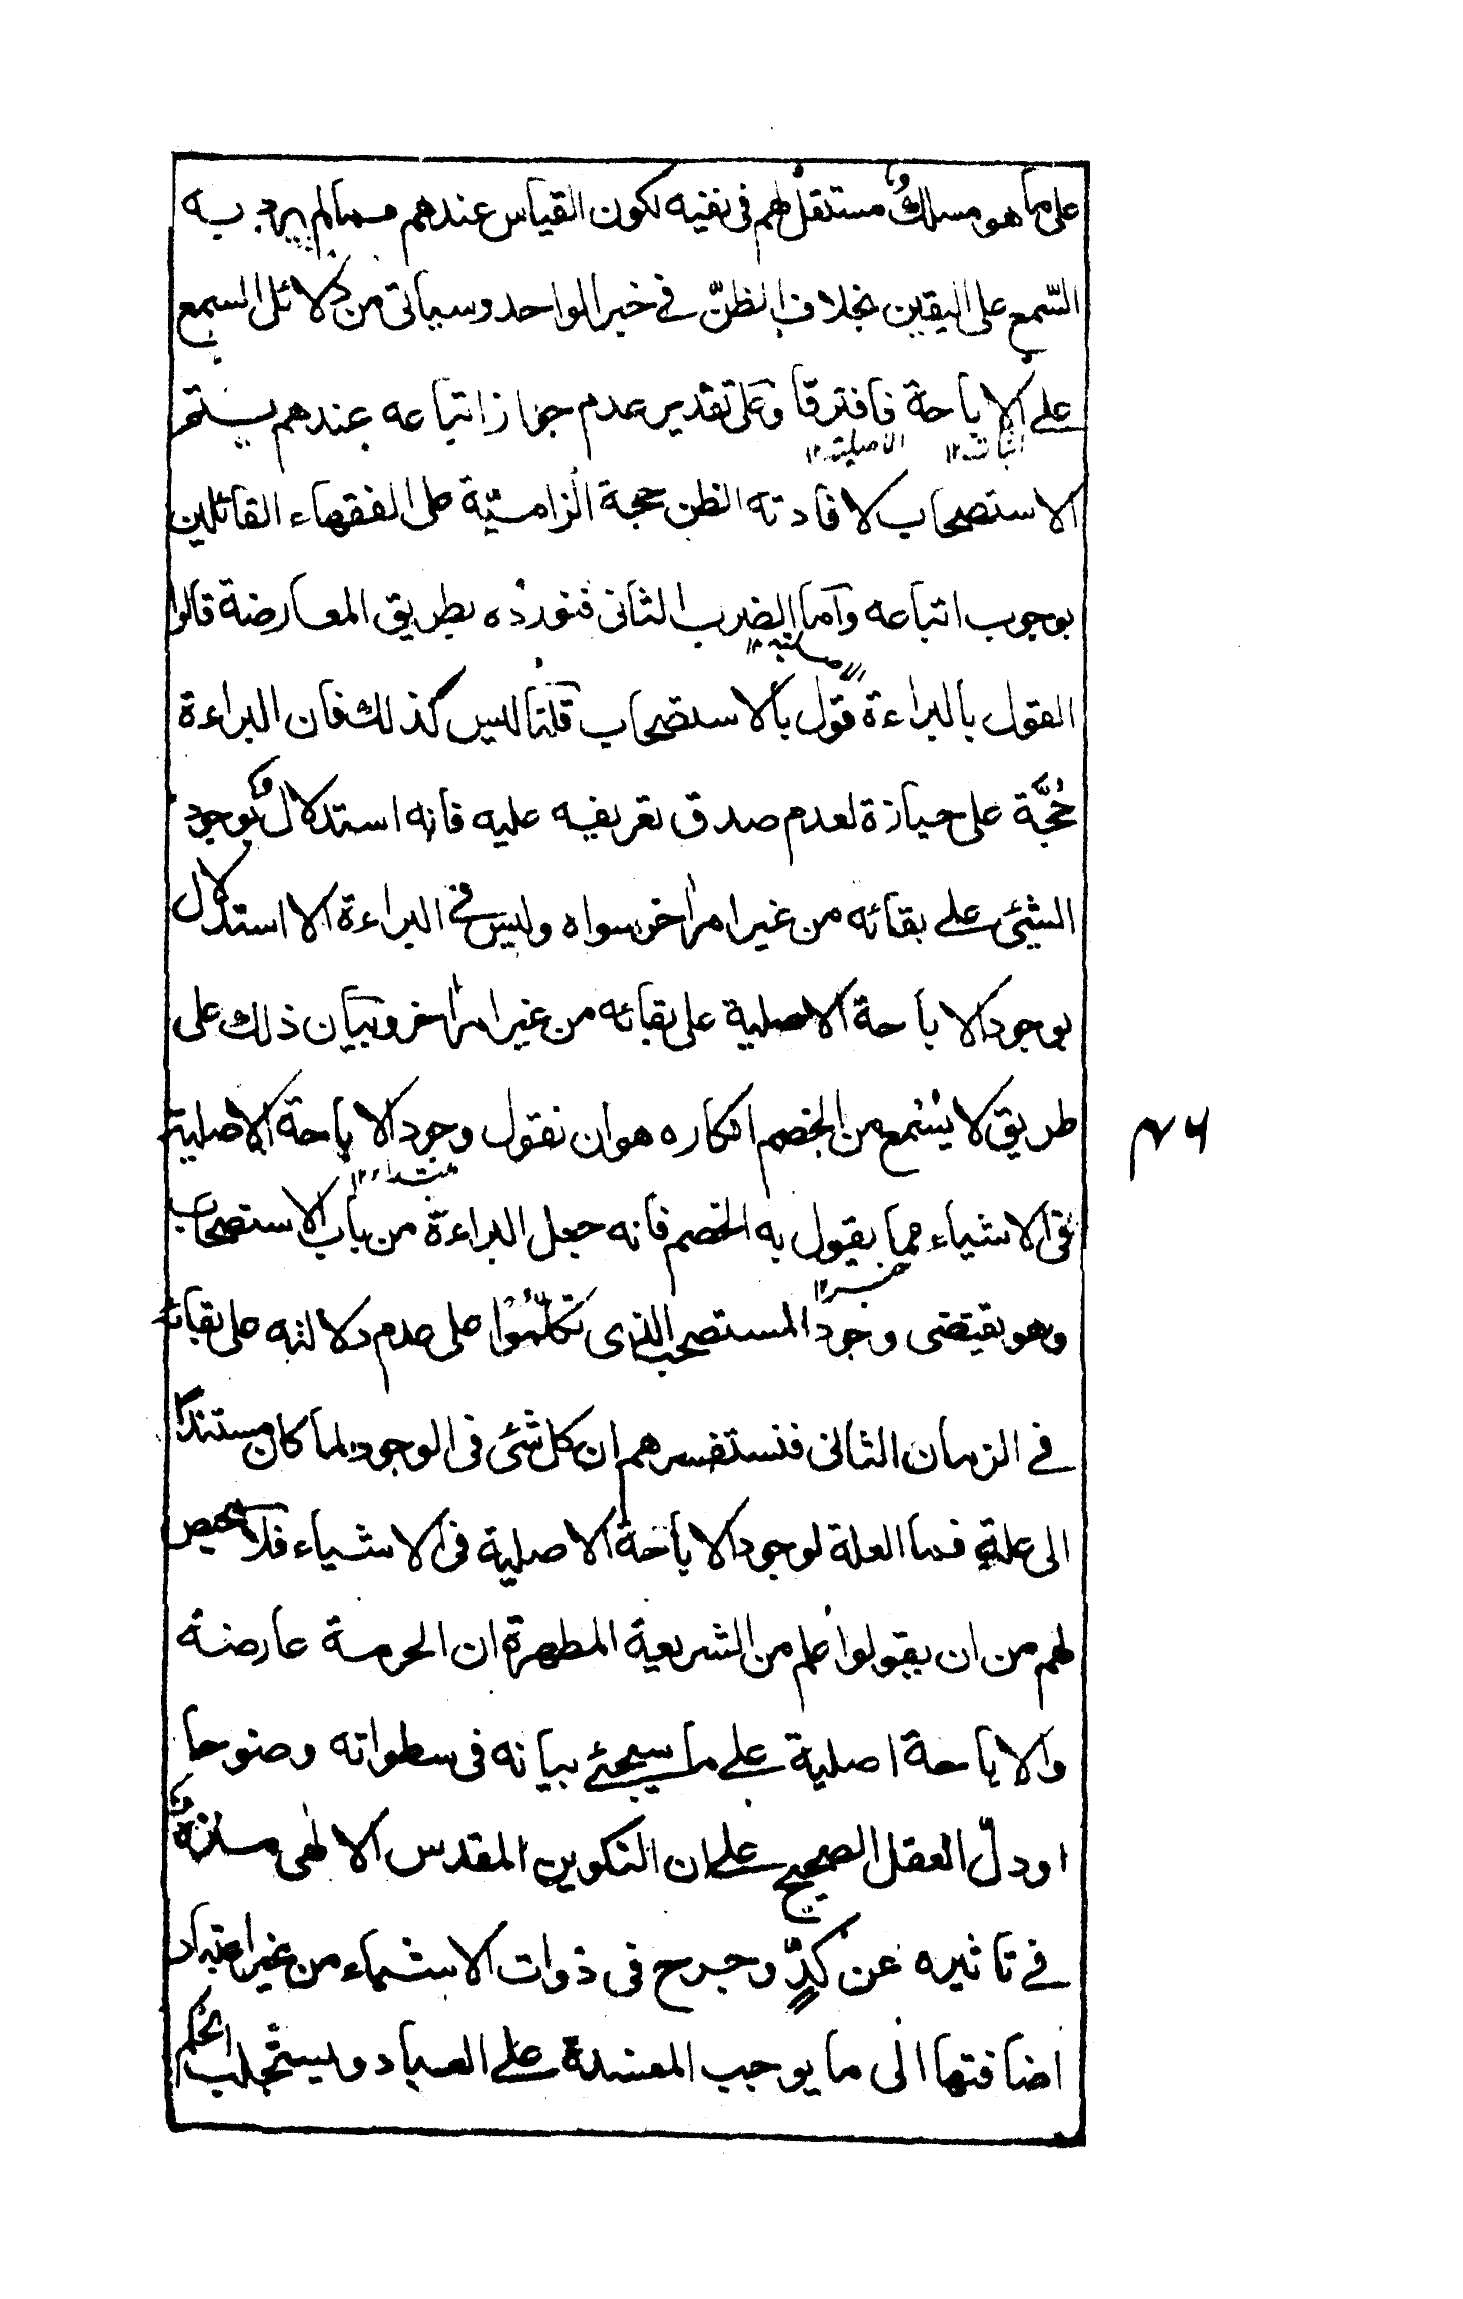 على ما هو مسلك مستقل لهم فى نفيه لكون القياس عندهم مما لم يرد به
السّمع على اليقين بخلاف الظنّ فے خبر الواحد وسياتى من دلائل السمع
علے الاباحة فافترقا وعلى تقدير عدم جواز اتباعه عندهم يستمر
اثباته١٢ الاصلية١٢
الاستصحاب لافادته الظن حجة الزاميّة على الفقهاء القائلين
بوجوب اتباعه وآما الضرب الثانى فنورده بطريق المعارضة قالوا
القول بالبراءة قول بالاستصحاب قلنا ليس كذلك فان البراءة
حُجَّة على حيازة لعدم صدق تعريفه عليه فانه استدلال بوجود
الشئى علے بقائه من غير امر اخر سواه وليس فے البراءة الا استدلال
بوجود الاباحة الاصلية على بقائه من غير امر اخر وبيان ذلك على
طريق لا يسمع من الخصم انكاره هو ان نقول وجود الاباحة الاصلية
مبتداء١٢
فى الاشياء مما يقول به الخصم فانه جعل البراءة من باب الاستصحاب
خبر١٢
وهو يقتضى وجود المستصحب الذى تكلّموا على عدم دلالته على بقائه
فے الزمان الثانى فنستفسرهم ان كل شئى فى الوجود لما كان مستندا
الى علة فما العلة لوجود الاباحة الاصلية فى الاشياء فلا محيص
لهم من ان يقولوا علم من الشريعة المطهرة ان الحرمة عارضة
والاباحة اصلية علے ما سيجئے بيانه فى سطواته وضوحا
او دلّ العقل الصحيح علے ان التكوين المقدس الالهى منزه
فے تاثيره عن كدٍّ وجرح فى ذوات الاشياء من غير اعتبار
اضافتها الى ما يوجب المفسدة علے العباد ويستجلب الحكم
٤٦